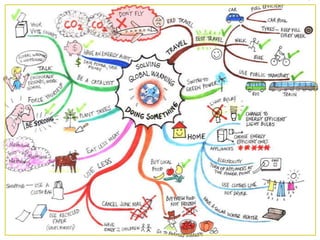 DON'T FLY
CO2
CO2
BAD TRAVEL
TRAVEL
BEST TRAVEL
CAR
FUEL EFFICIENT
CAR POOL
TYRES - KEEP FULL
EVERY WEEK
WALK
BIKE
USE PUBLIC TRANSPORT
BUS
TRAIN
SOLVING
GLOBAL WARMING
DOING SOMETHING
SWITCH TO
GREEN POWER
HOME
LIGHT BULBS
CHANGE TO
ENERGY EFFICIENT
LIGHT BULBS
APPLIANCES
CHOOSE ENERGY
EFFICIENT ONES
ELECTRICITY
TURN OFF APPLIANCES AT
THE POWER POINT
USE CLOTHES LINE
NOT DRYER
SOLAR WATER HEATER
BUY LOCAL
FOOD
BUY FRESH FOOD
NOT FROZEN
GO TO FARMERS MARKETS
USE LESS
CANCEL JUNK MAIL
HAVE
FEWER CHILDREN
USE RECYCLED
PAPER
SHOPPING - USE A
CLOTH BAG
EAT LESS MEAT
METHANE
PLANT TREES
BE STRONG
FORCE YOURSELF
TALK
BE A CATALYST
HAVE AN ENERGY AUDIT
YOUR
VOTE COUNTS